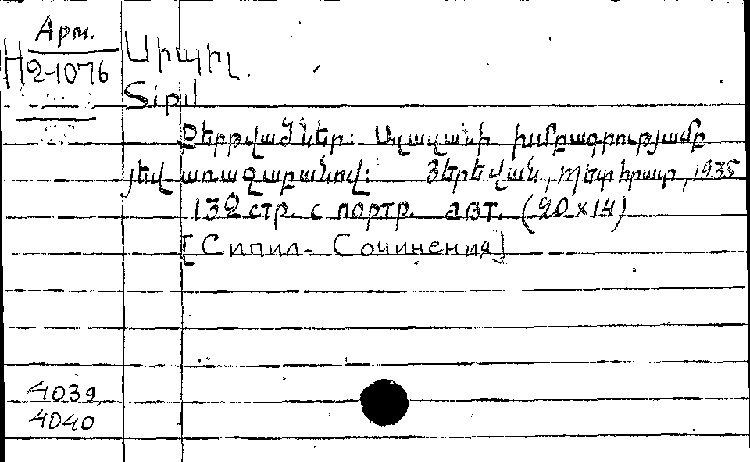 Арм.
H 2-1076
Սիպիլ
Sipil
Քերթվածներ: Ալազանի խմբագրությամբ
յեվ առաջաբանով: Յերեվան, Պետհրատ, 1935
132 стр. с портр. авт. (20×14)
[Сипил. Сочинения]
4039
4040